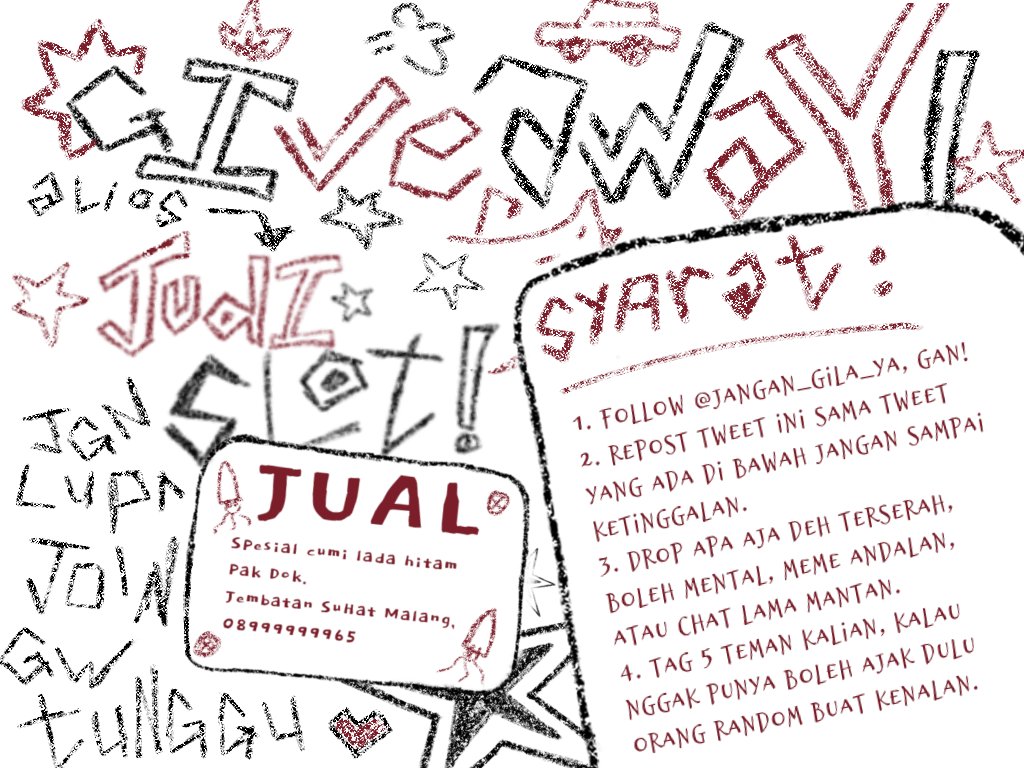 GIveawaY!
alias
JudI
SLot!
JGN
Lupa
JOIN
GW
tunggu
JUAL
Spesial cumi lada hitam
Pak Dok.
Jembatan SuHat Malang,
08999999965
SYArat :
1. FOLLOW @JANGAN_GiLA_YA, GAN!
2. REPOST TWEET iNi SAMA TWEET
YANG ADA Di BAWAH JANGAN SAMPAi
KETiNGGALAN.
3. DROP APA AJA DEH TERSERAH,
BOLEH MENTAL, MEME ANDALAN,
ATAU CHAT LAMA MANTAN.
4. TAG 5 TEMAN KALiAN, KALAU
NGGAK PUNYA BOLEH AJAK DULU
ORANG RANDOM BUAT KENALAN.